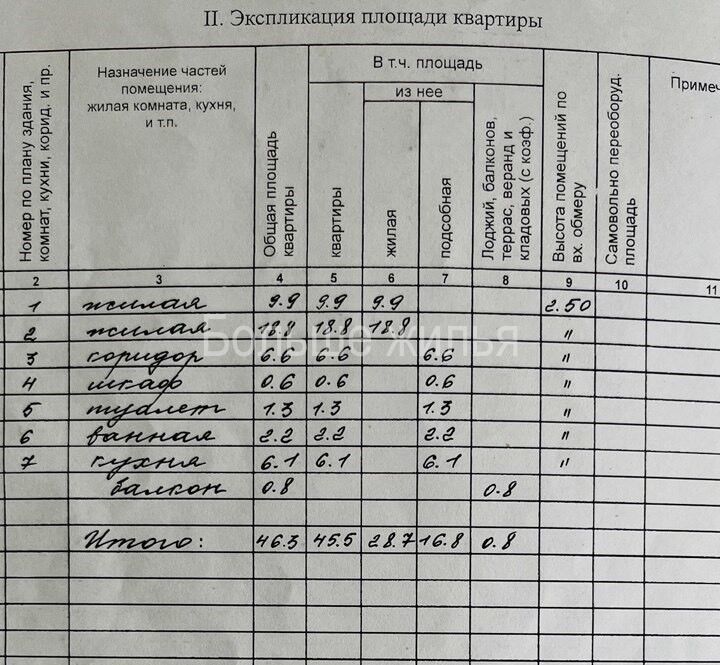 II. Экспликация площади квартиры
Номер по плану здания, комнат, кухни, корид. и пр.
Назначение частей
помещения:
жилая комната, кухня,
и т.п.
Общая площадь квартиры
В т.ч. площадь
из нее
квартиры
жилая
подсобная
Лоджий, балконов, террас, веранд и кладовых (с коэф.)
Высота помещений по вх. обмеру
Самовольно переоборуд. площадь
Примеч
2 3 4 5 6 7 8 9 10 11
1 жилая 9.9 9.9 9.9 2.50
2 жилая 18.8 18.8 18.8 "
Больше жилья
3 коридор 6.6 6.6 6.6 "
4 шкаф 0.6 0.6 0.6 "
5 туалет 1.3 1.3 1.3 "
6 ванная 2.2 2.2 2.2 "
7 кухня 6.1 6.1 6.1 "
балкон 0.8 0.8
Итого: 46.3 45.5 28.7 16.8 0.8